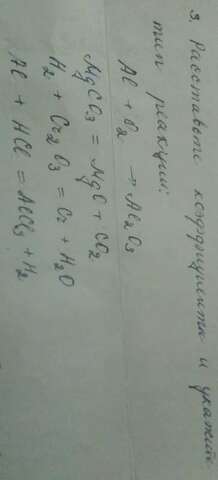 3. Расставьте коэффициенты и укажите
тип реакции:
Al + O₂ → Al₂O₃
MgCO₃ = MgO + CO₂
H₂ + Cr₂O₃ = Cr + H₂O
Al + HCl = AlCl₃ + H₂